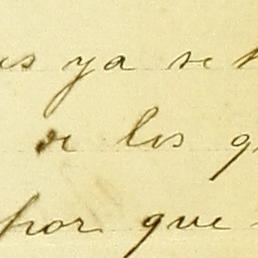 ya se
de los
por que